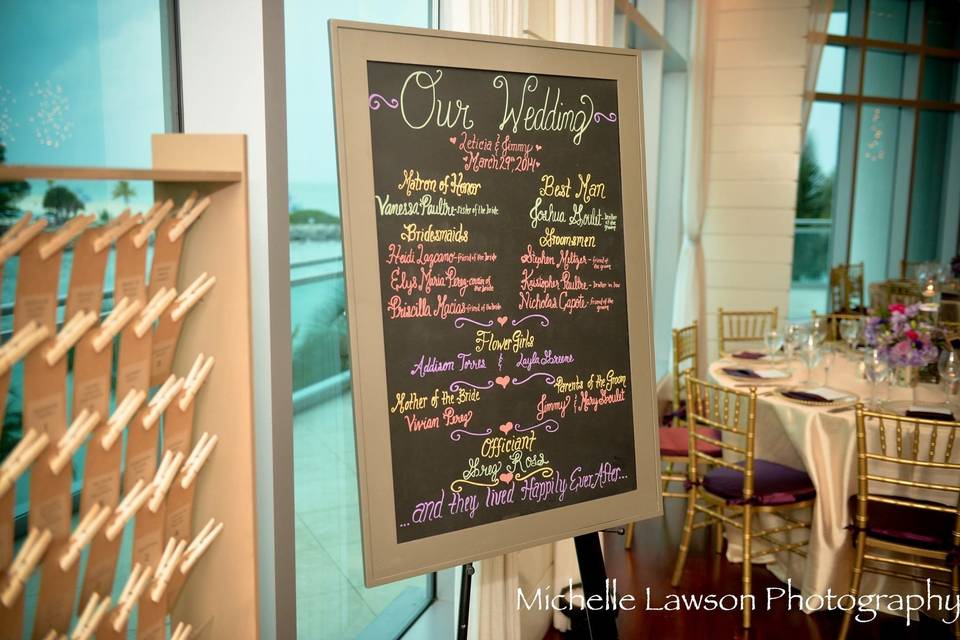 Our Wedding
Leticia & Jimmy
March 29th, 2014
Matron of Honor
Vanessa Paultre - sister of the bride
Bridesmaids
Heidi Lozcano - friend of the bride
Elys Maria Perez - cousin of the bride
Priscilla Macias - friend of the bride
Best Man
Joshua Goulet - brother of the groom
Groomsmen
Stephen Meltzer - friend of the groom
Kristopher Paultre - brother in law
Nicholas Capote - friend of the groom
Flower Girls
Addison Torres & Layla Greene
Mother of the Bride
Vivian Perez
Parents of the Groom
Jimmy & Mary Goulet
Officiant
Greg Ross
...and they lived Happily Ever After...
Michelle Lawson Photography